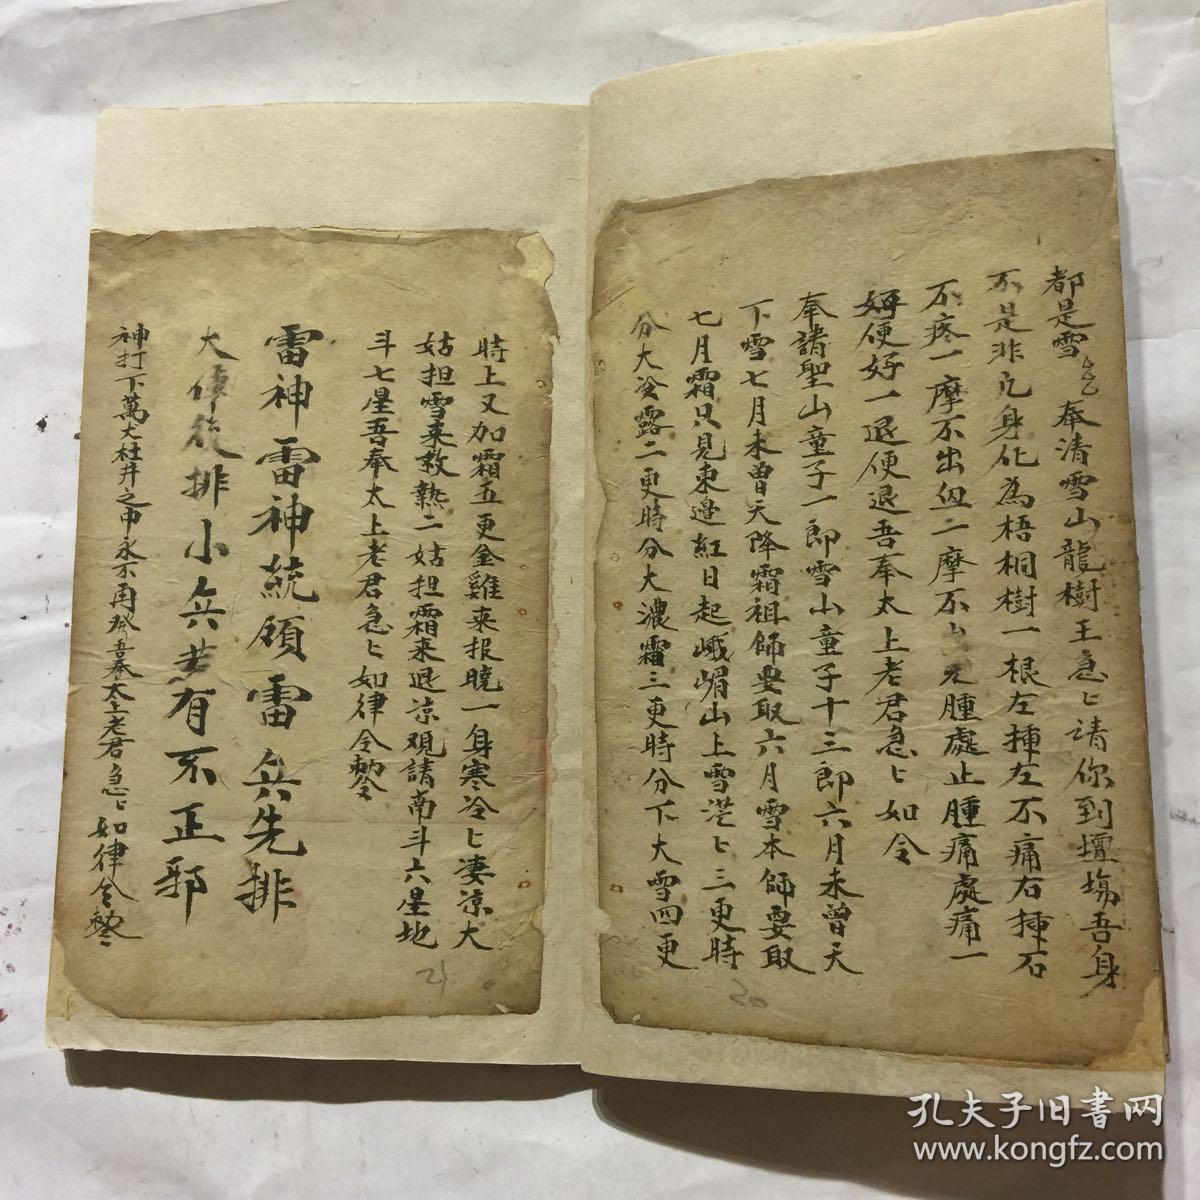 都是雪〻奉清雪山龍樹王急〻請你到壇塲吾身
不是非凡身化為梧桐樹一根左捶左不痛右捶石
不疼一摩不出血二摩不 腫處止腫痛處痛一
便好一退便退吾奉太上老君急〻如令
奉請聖山童子一郎雪山童子十三郎六月未曾天
下雪七月未曾天降霜祖師要取六月雪本師要取
七月霜只見東邊紅日起峨嵋山上雪茫〻三更時
分大冷露二更時分大濃霜三更時分下大雪四更
時上又加霜五更金雞来报曉一身寒冷〻凄凉大
姑担雪来救熱二姑担霜来退凉观請南斗六星地
斗七星吾奉太上老君急〻如律令
雷神雷神統领雷兵先排
大 後排小兵若有不正邪
神打下萬丈杜井之中永不再發吾奉太上老君急〻如律令
21
20
孔夫子旧书网
www.kongfz.com